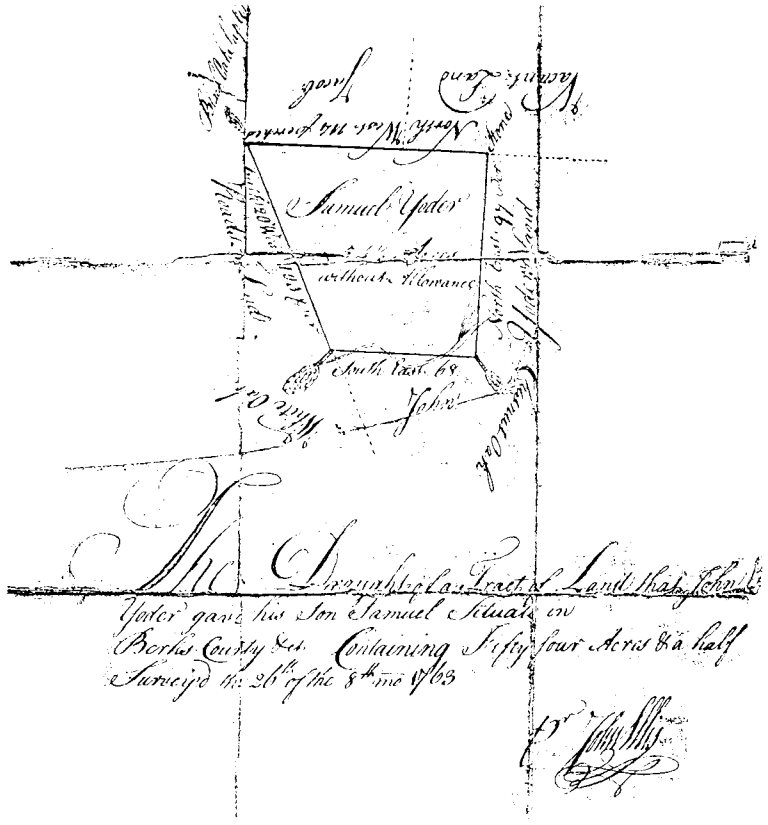 Jacob
Vacant Land
a Stone
North West 114 perches
Samuel Yoder
54½ Acres
without Allowance
North East 97 per
Yoders Land
South East 68
John
a White Oak
a Chesnut Oak
The Draught of a Tract of Land that John
Yoder gave his Son Samuel Situate in
Berks County &c. Containing Fifty four Acres & a half
Survey'd the 26th of the 8th mo 1763
Pr John Ellis